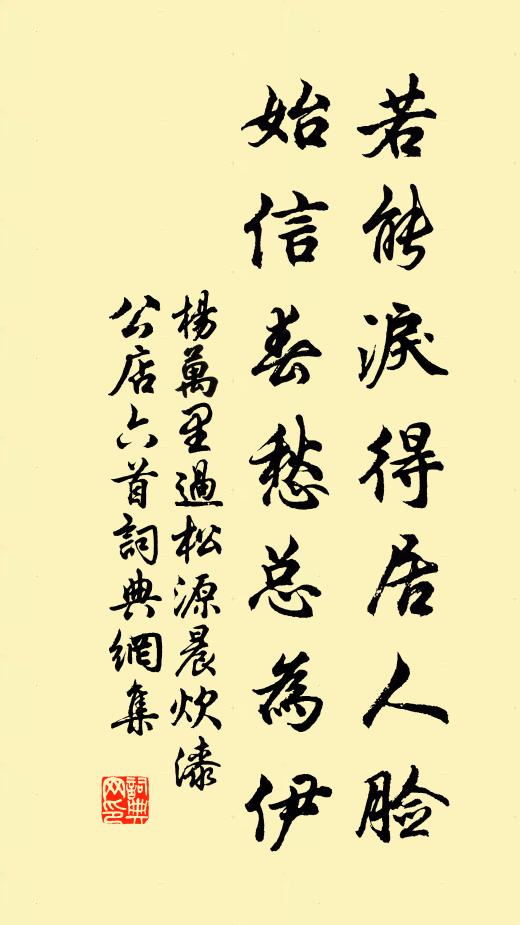 若能淚得居人脸
始信春愁总為伊
楊萬里過松源晨炊漆
公店六首詞典網集
詞典
网印